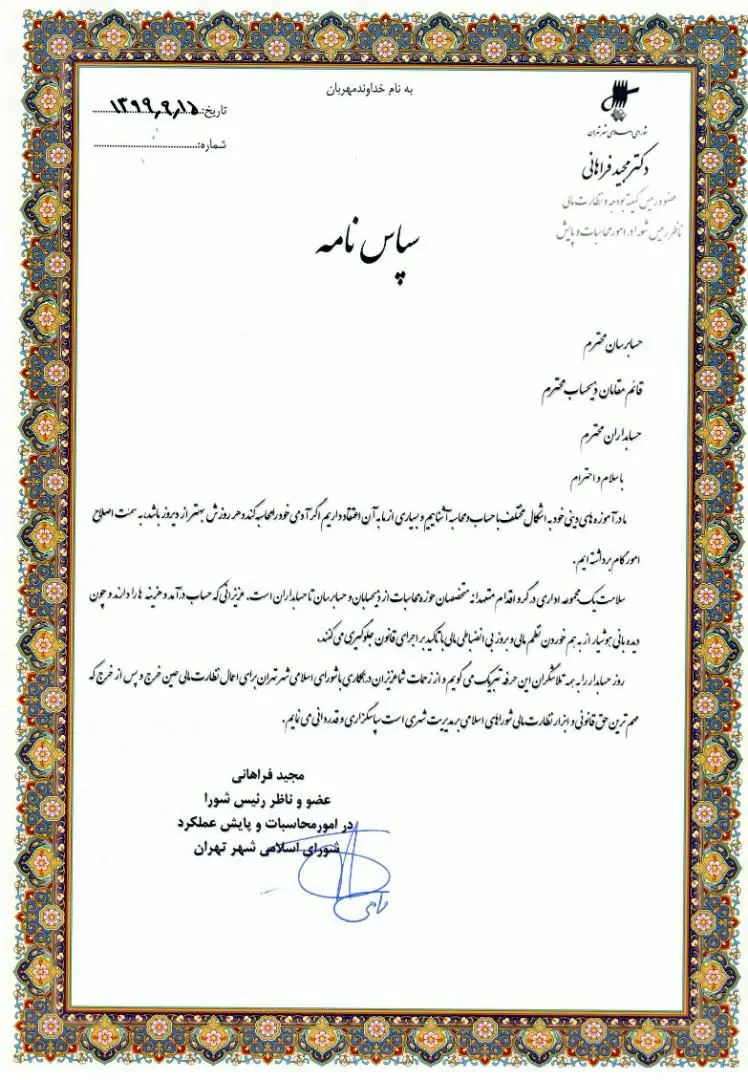 به نام خداوندمهربان
تاریخ: ۱۳۹۹٫۹٫۱۵
شماره:
شورای اسلامی شهر تهران
دکتر مجید فراهانی
عضو و رییس کمیته بودجه و نظارت مالی
ناظر رییس شورا در امور محاسبات و پایش
سپاس نامه
حسابرسان محترم
قائم مقامان ذیحساب محترم
حسابداران محترم
با سلام و احترام
ما در آموزه های دینی خود به اشکال مختلف با حساب و محاسبه آشناییم و بسیاری از ما به آن اعتقاد داریم اگر آدمی خود را محاسبه کند و هر روزش بهتر از دیروز باشد، به سمت اصلاح
امور گام برداشته ایم.
سلامت یک مجموعه اداری در گرو اقدام متعهدانه متخصصان حوزه محاسبات از ذیحسابان و حسابرسان تا حسابداران است. عزیزانی که حساب درآمد و هزینه ها را دارند و چون
دیده بانی هوشیار از به هم خوردن نظم مالی و بروز بی انضباطی مالی با تاکید بر اجرای قانون جلوگیری می کنند.
روز حسابدار را به همه تلاشگران این حرفه تبریک می گویم و از زحمات شما عزیزان در همکاری با شورای اسلامی شهر تهران برای اعمال نظارت مالی حین خرج و پس از خرج که
مهم ترین حق قانونی و ابزار نظارت مالی شوراهای اسلامی بر مدیریت شهری است سپاسگزاری و قدردانی می نمایم.
مجید فراهانی
عضو و ناظر رئیس شورا
در امورمحاسبات و پایش عملکرد
شورای اسلامی شهر تهران